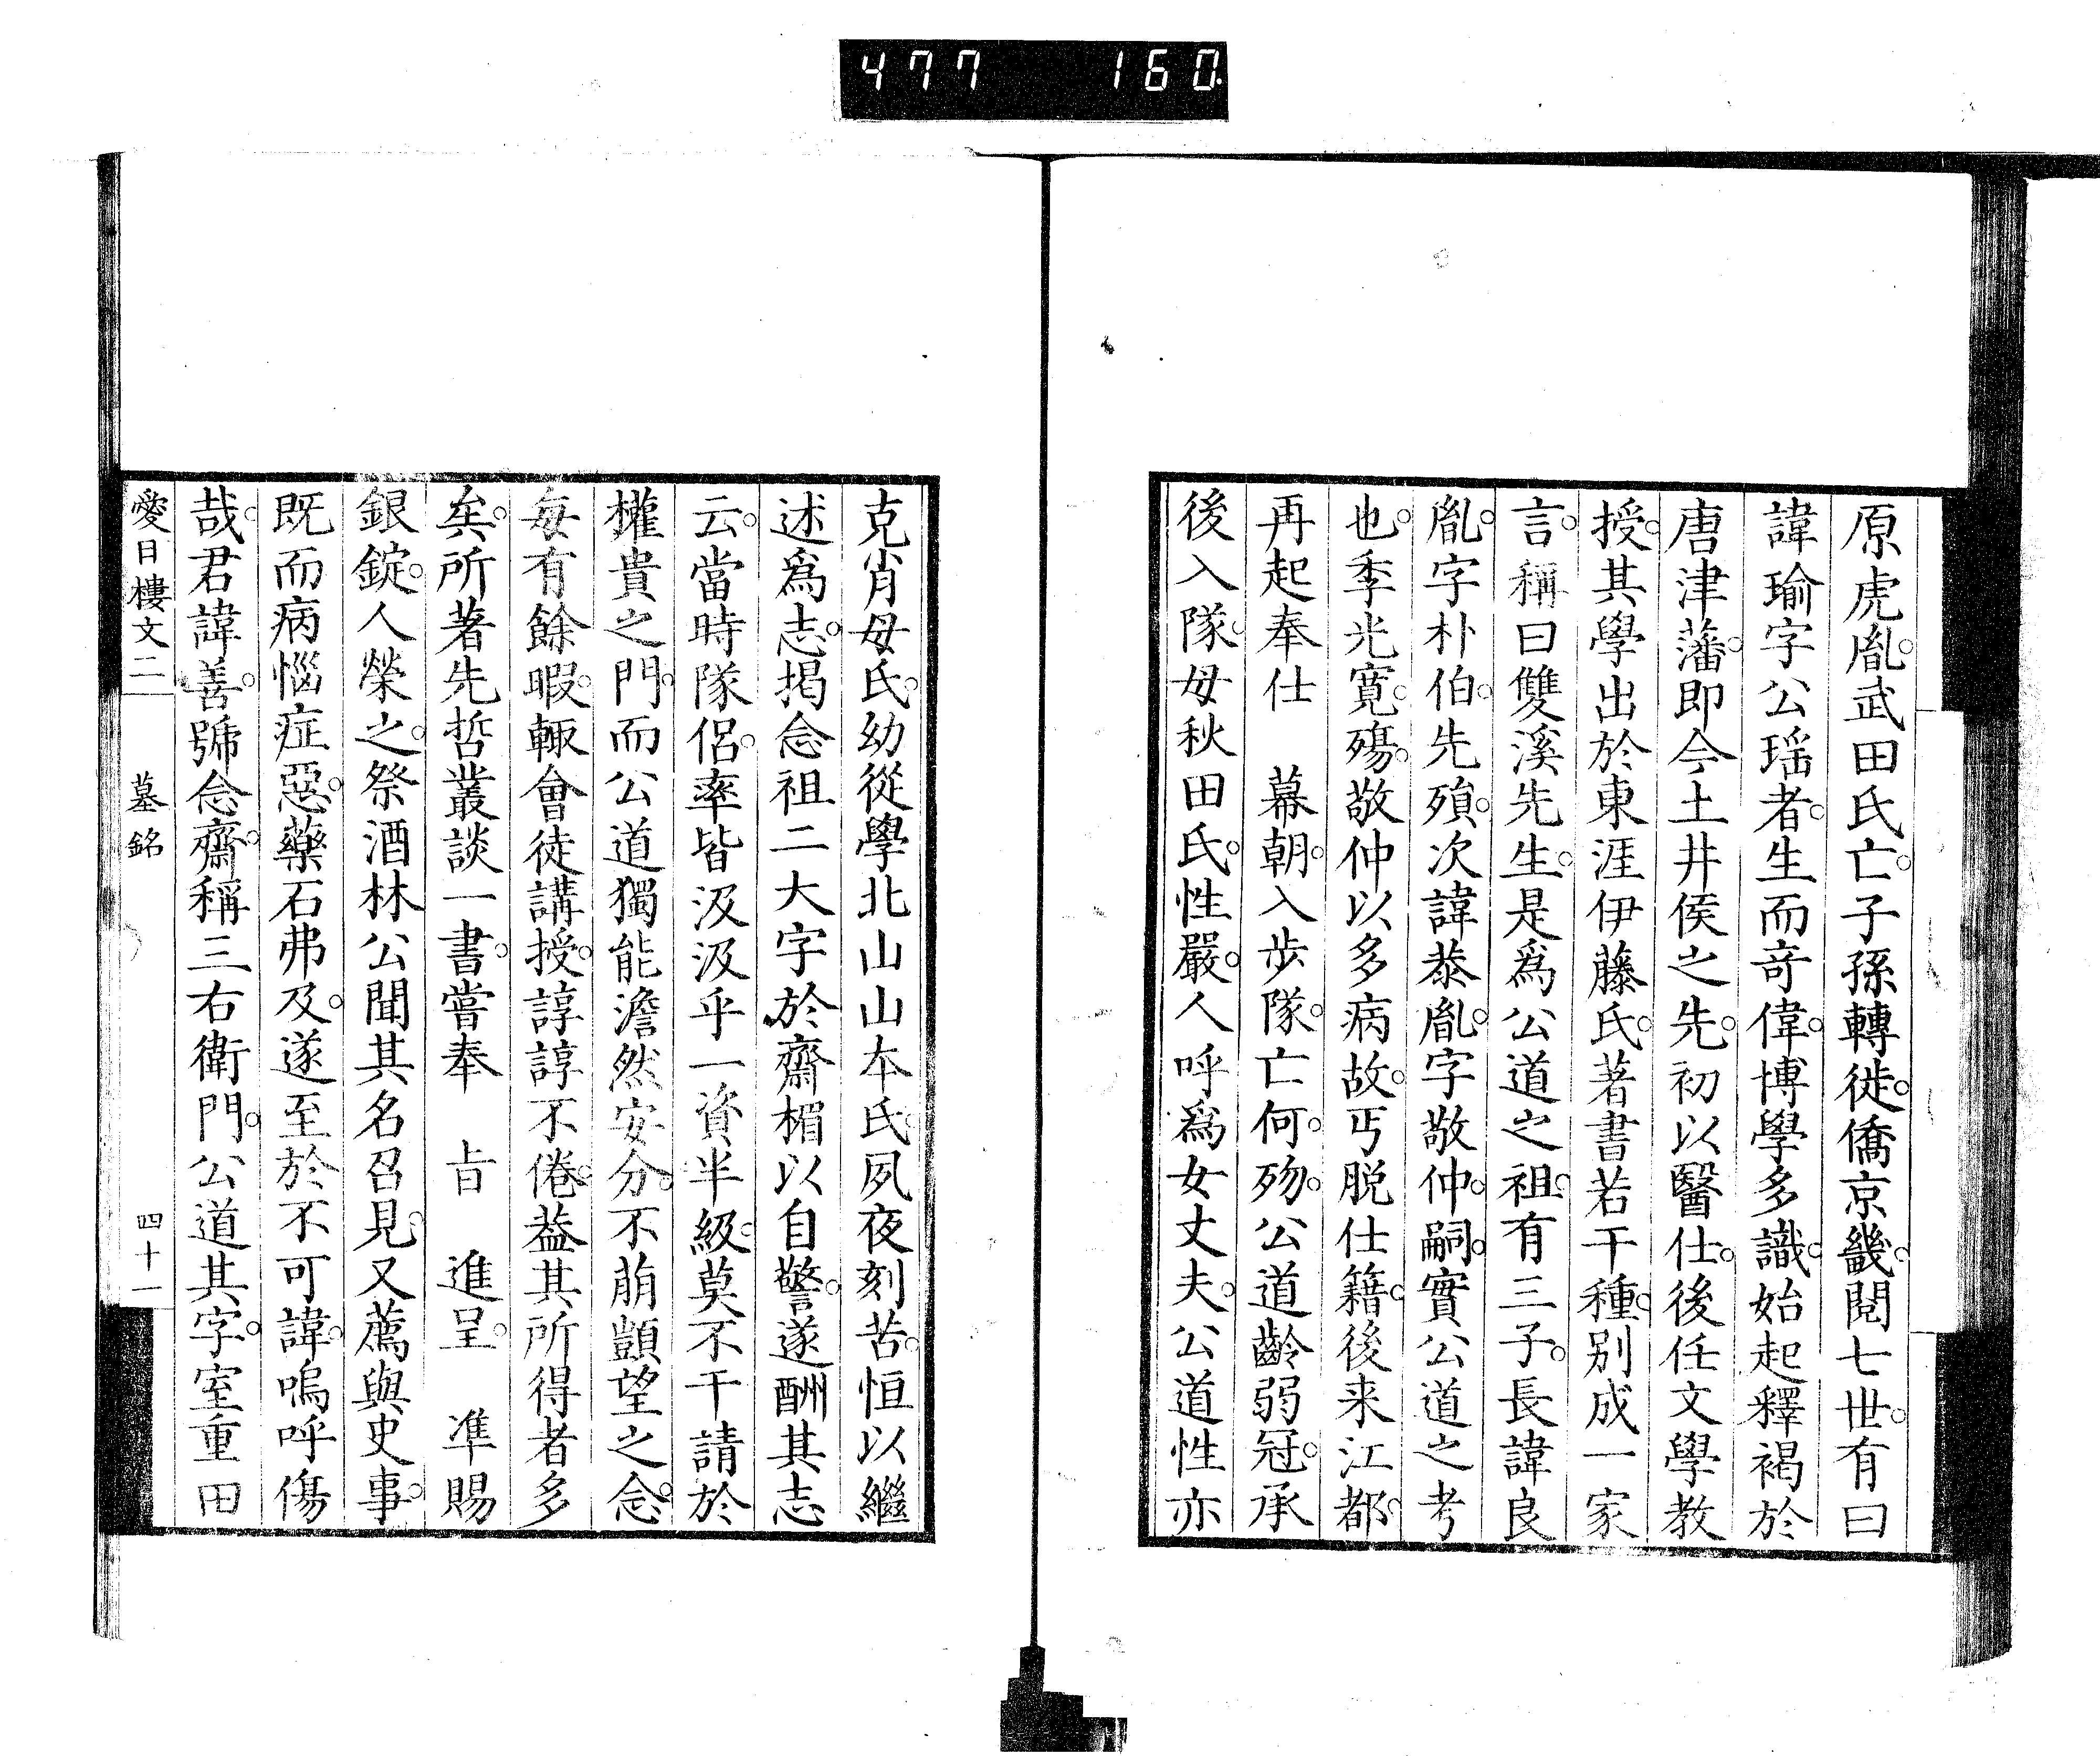 477 160
原虎胤。武田氏亡。子孫轉徙。僑京畿。閱七世。有曰
諱瑜字公瑶者。生而奇偉。博學多識。始起釋褐於
唐津藩。卽今土井侯之先。初以醫仕。後任文學教
授。其學出於東涯伊藤氏。著書若干種。別成一家
言。稱曰雙溪先生。是爲公道之祖。有三子。長諱良
胤。字朴伯。先殞。次諱㳟胤。字敬仲。嗣。實公道之考
也。季光寛。殤。敬仲以多病故。丐脱仕籍。後来江都。
再起奉仕　幕朝。入步隊。亡何。歾。公道齡弱冠。承
後入隊。母秋田氏。性嚴。人呼爲女丈夫。公道性亦
克肖母氏。幼從學北山山本氏。夙夜刻苦。恒以繼
述爲志。揭念祖二大字於齋楣以自警。遂酬其志
云。當時隊侶。率皆汲汲乎一資半級。莫不干請於
權貴之門。而公道獨能澹然安分。不萠顗望之念。
每有餘暇。輙會徒講授。諄諄不倦。葢其所得者多
矣。所著先哲叢談一書。嘗奉　旨　進呈。　準賜
銀錠。人榮之。祭酒林公聞其名召見。又薦與史事。
既而病惱症惡。藥石弗及。遂至於不可諱。嗚呼傷
哉。君諱善。號念齋。稱三右衛門。公道其字。室重田
愛日樓文二　墓銘　四十一